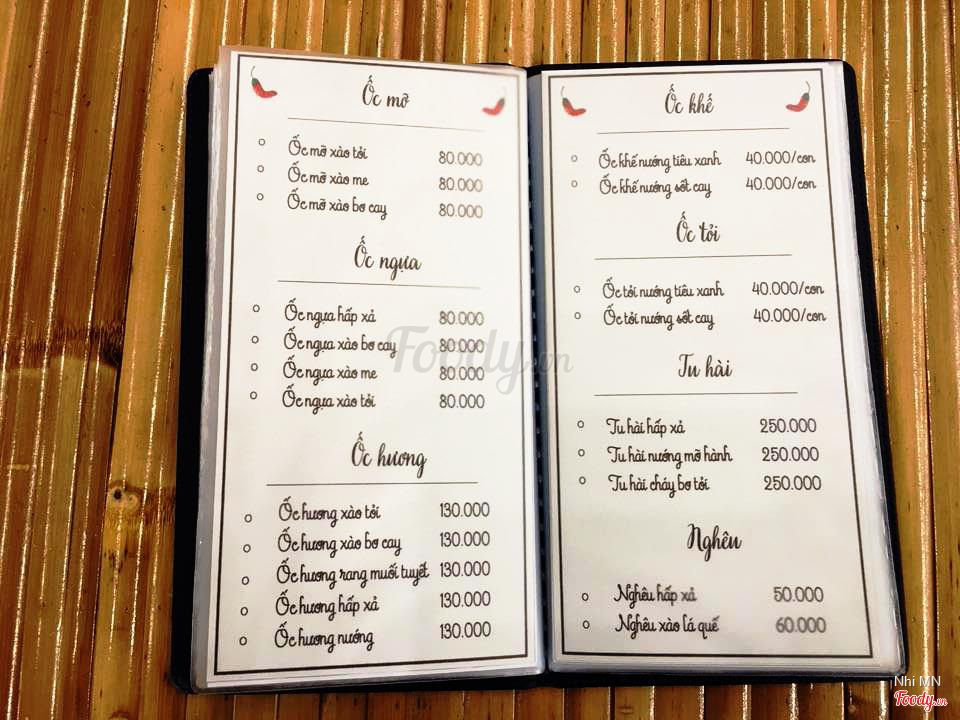 Ốc mỡ
Ốc mỡ xào tỏi 80.000
Ốc mỡ xào me 80.000
Ốc mỡ xào bơ cay 80.000
Ốc ngựa
Ốc ngựa hấp xả 80.000
Ốc ngựa xào bơ cay 80.000
Ốc ngựa xào me 80.000
Ốc ngựa xào tỏi 80.000
Ốc hương
Ốc hương xào tỏi 130.000
Ốc hương xào bơ cay 130.000
Ốc hương rang muối tuyết 130.000
Ốc hương hấp xả 130.000
Ốc hương nướng 130.000
Ốc khế
Ốc khế nướng tiêu xanh 40.000/con
Ốc khế nướng sốt cay 40.000/con
Ốc tỏi
Ốc tỏi nướng tiêu xanh 40.000/con
Ốc tỏi nướng sốt cay 40.000/con
Tu hài
Tu hài hấp xả 250.000
Tu hài nướng mỡ hành 250.000
Tu hài cháy bơ tỏi 250.000
Nghêu
Nghêu hấp xả 50.000
Nghêu xào lá quế 60.000
Foody.vn
Nhi MN
Foody.vn